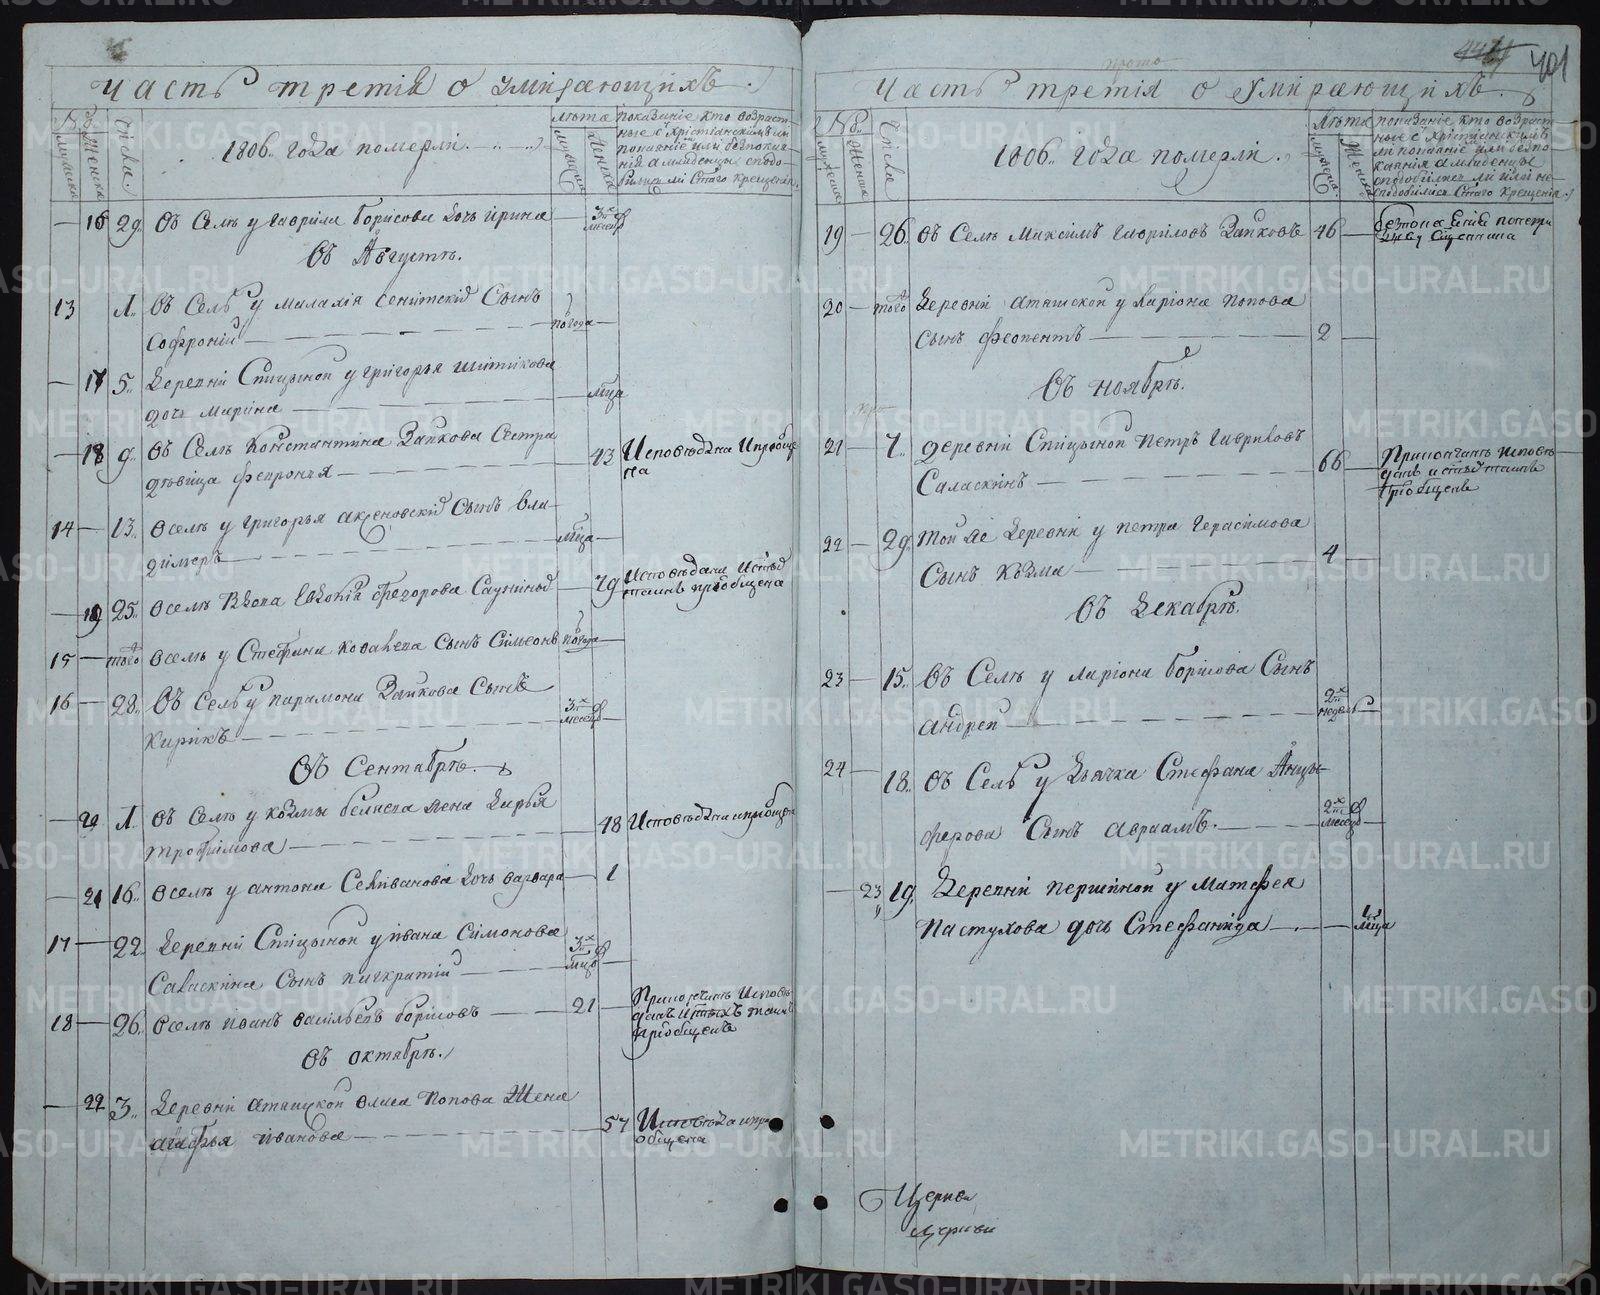 Часть третія о умирающихъ.
№
мужеска
Женска
Числа.
1806. года померли.
лѣта
мужеска
Женска
показаніе кто возраст-
ные с Христіанскимъ ли
покаяніе или безпокая-
нія а младенцы сподо-
бились ли Стаго крещенія.
16 29. въ Селѣ у гаврила борисова дочь ирина 3х месецъ
Въ Августѣ.
13 1. въ Селѣ у малахія сенитскій Сынъ
Софроній полгода
17 5. Деревни Спицыной у григорья шитикова
дочь марина мца
18 9. въ Селѣ Константина Зайкова Сестра
дѣвица февронья 43 Исповѣдана Ипріобще
на
14 13. в селѣ у григорья аксеновскій сынъ вла-
димеръ мца
19 25. в селѣ вдова евдокия федорова Саунины 79 Исповѣдана Истыхъ
таинъ пріобщена
15 того в селѣ у Стефана ковалева Сынъ Симеонъ полгода
16 28. въ Селѣ у парамона Зайкова Сынъ
Кирикъ 3х месецъ
Въ Сентябрѣ.
20 1. въ Селѣ у козмы беляева жена дарья
трофимова 48 Исповѣдана ипріобщена
21 16. в селѣ у антона Селиванова дочь варвара 1
17 22. Деревни Спицыной у ивана Симонова
Саласкина Сынъ панкратій 3х мцъ
18 26. в селѣ иванъ васильевъ борисовъ 21 При кончинѣ Исповѣ-
данъ истыхъ таинъ
пріобщенъ
Въ октябрѣ.
22 3. Деревни аташской власа попова Жена
агафья иванова 57 Исповѣдана ипри
общена
401
Часть третія о Умирающихъ.
№
мужеска
Женска
Числа
1806. года померли.
лѣта
мужеска
Женска
показаніе кто возраст-
ные с Христіанскимъ
ли покаяніе или безпо-
каянія а младенцы
сподобились ли или не-
сподобились Стаго Крещенія.
19 26. въ Селѣ Максимъ гавриловъ Зайковъ 46
20 того Деревни аташской у ларіона попова
сынъ феопентъ 2
Въ ноябрѣ.
21 7. деревни Спицыной петръ гавриловъ
Саласкинъ 66 При кончинѣ исповѣ-
данъ истыхъ таинъ
пріобщенъ
22 29. той же Деревни у петра герасимова
Сынъ козма 4
Въ Декабрѣ.
23 15. въ Селѣ у ларіона борисова Сынъ
андрей 2х недель
24 18. въ Селѣ у дьячка Стефана Анцы-
ферова Сынъ авраамъ. 2х месецъ
23 19. Деревни першиной у Матфея
пастухова дочь Стефанида мца
Церкви